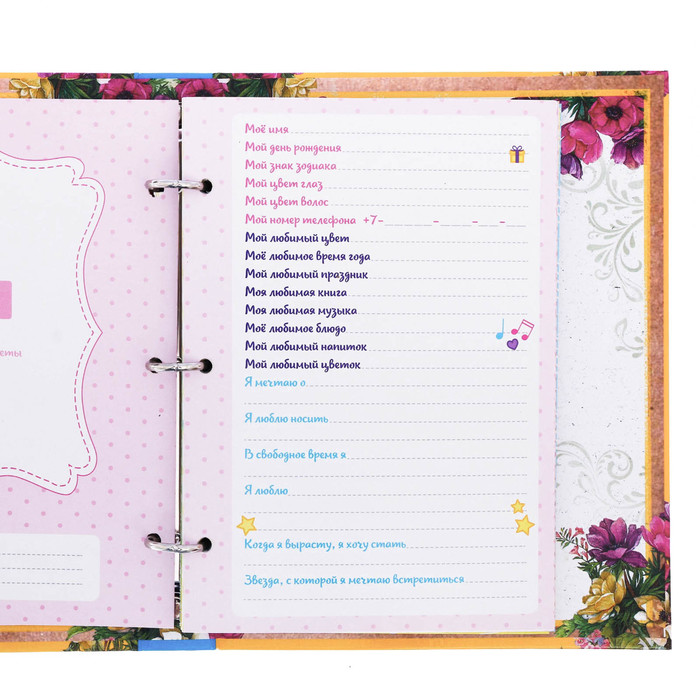 еты
Моё имя
Мой день рождения
Мой знак зодиака
Мой цвет глаз
Мой цвет волос
Мой номер телефона +7-
Мой любимый цвет
Моё любимое время года
Мой любимый праздник
Моя любимая книга
Моя любимая музыка
Моё любимое блюдо
Мой любимый напиток
Мой любимый цветок
Я мечтаю о
Я люблю носить
В свободное время я
Я люблю
Когда я вырасту, я хочу стать
Звезда, с которой я мечтаю встретиться